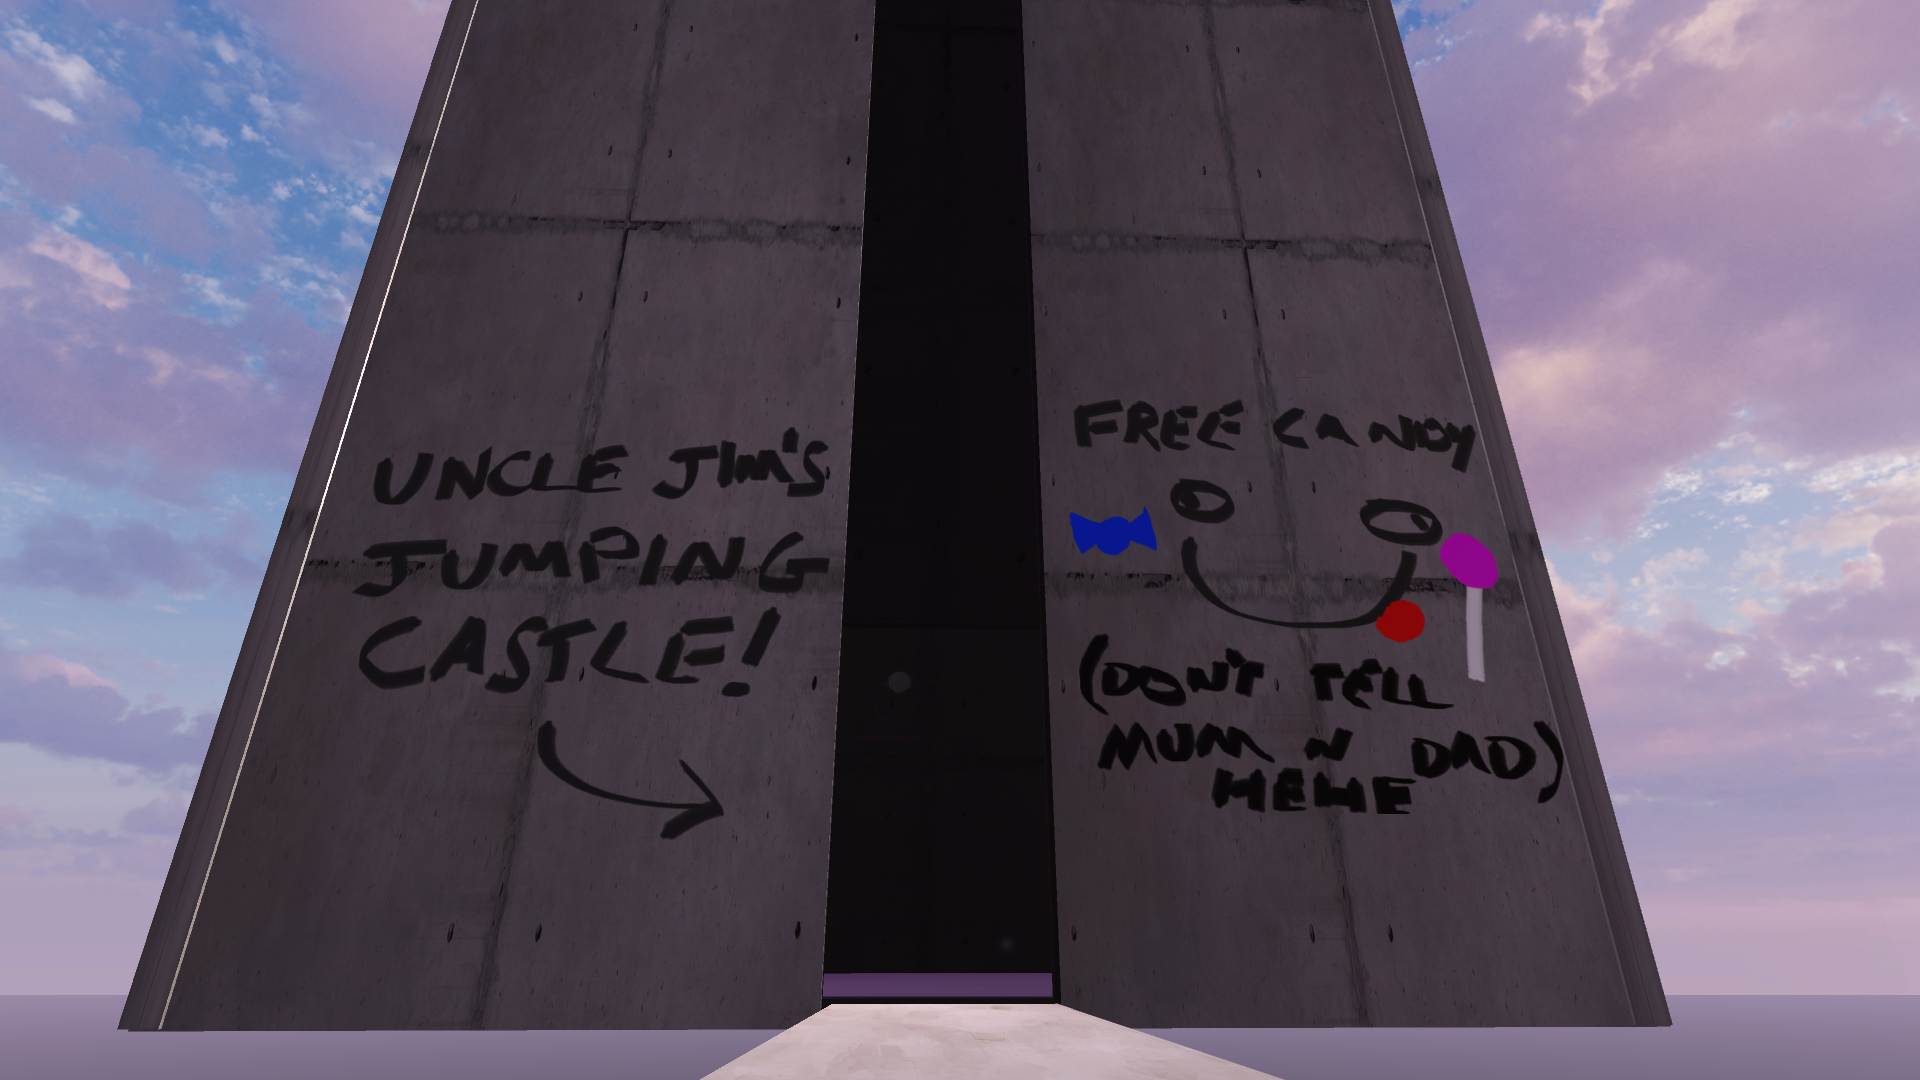 UNCLE JIM'S
JUMPING
CASTLE!
FREE CANDY
(DON'T TELL
MUM N DAD)
HEHE